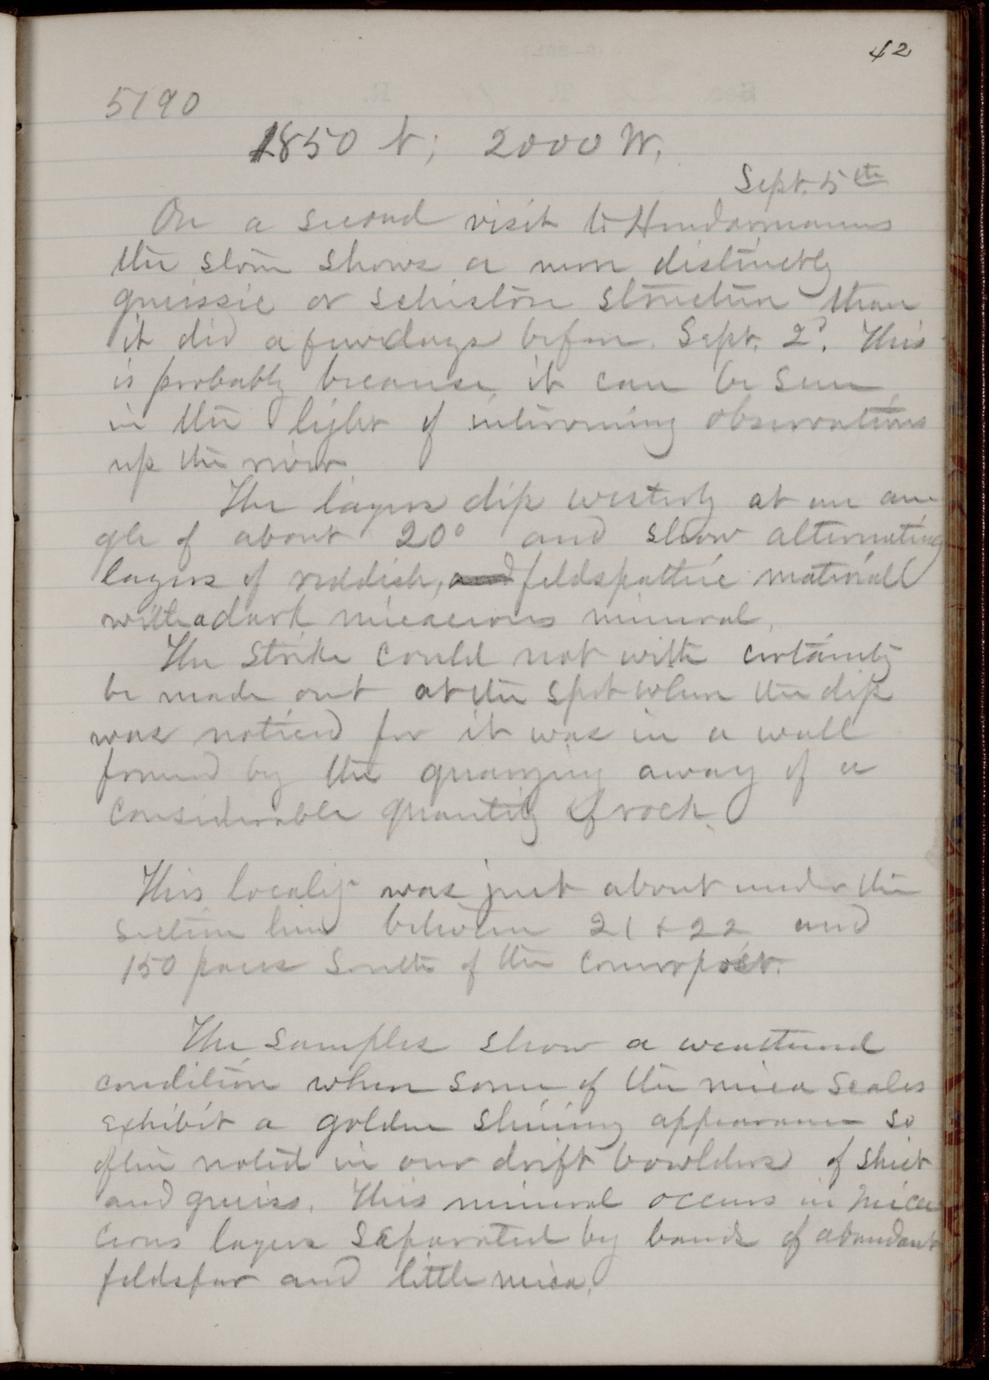 42
5190
1850 N; 2000 W.
Sept. 5th
On a second visit to
the stone shows a more distinctly
gneissic or schistose structure than
it did a few days before. Sept. 2d. This
is probably because it can be seen
in the light of intervening observations
up the river
The layers dip westerly at an an-
gle of about 20° and show alternating
layers of reddish, and feldspathic material
with a dark micaceous mineral.
The strike could not with certainty
be made out at the spot where the dip
was noticed for it was in a wall
formed by the quarrying away of a
considerable quantity of rock.
This locality was just about under the
section line between 21 & 22 and
150 paces south of the corner post.
The samples show a weathered
condition where some of the mica scales
exhibit a golden shining appearance so
often noted in our drift bowlders of shist
and gneiss. This mineral occurs in mica
ceous layers separated by bands of abundant
feldspar and little mica.